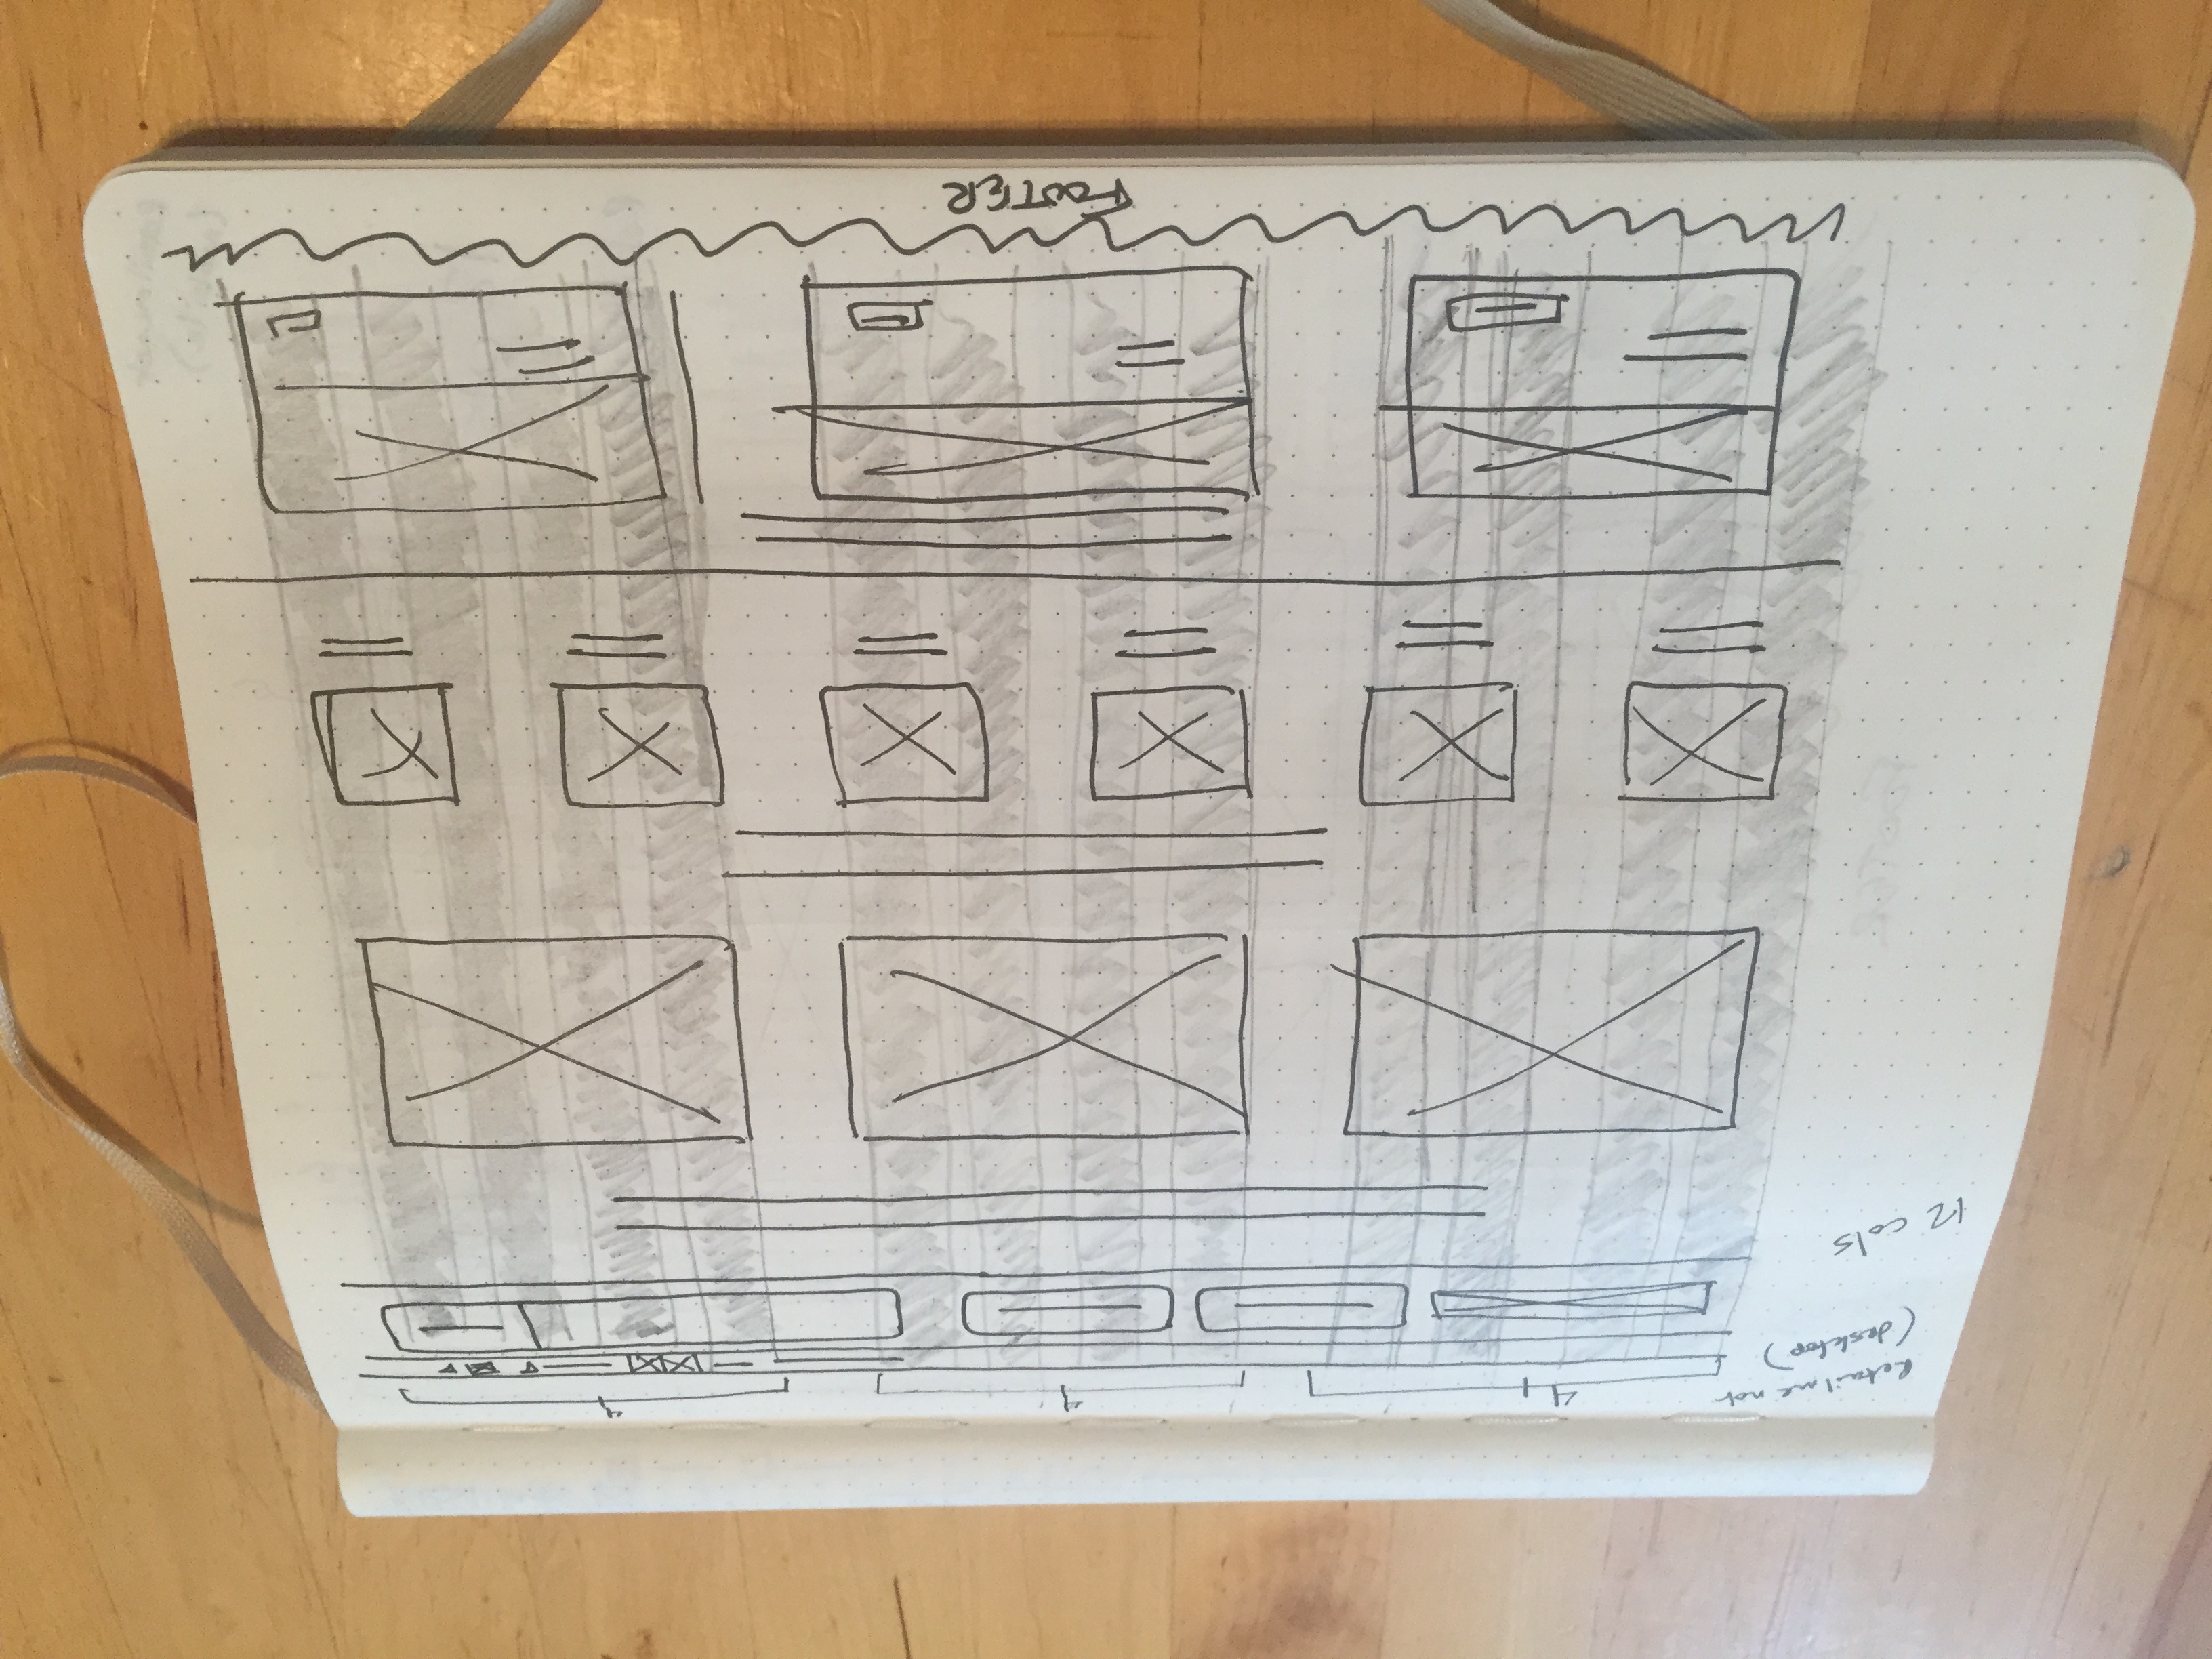 Retail me not
(desktop)
12 cols
4
4
4
FOOTER